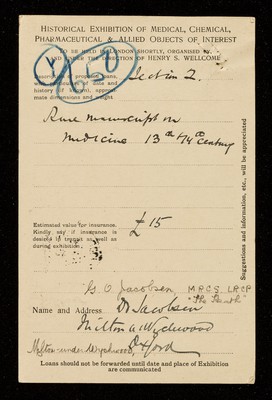 HISTORICAL EXHIBITION OF MEDICAL, CHEMICAL,
PHARMACEUTICAL & ALLIED OBJECTS OF INTEREST
TO BE HELD IN LONDON SHORTLY, ORGANISED BY
AND UNDER THE DIRECTION OF HENRY S. WELLCOME
Section 2.
history (if known), approxi-
mate dimensions and weight
Rare manuscript on
Medicine 13th & 14th Century
Estimated value for insurance.
Kindly say if insurance is
desired in transit as well as
during exhibition.
£15
Suggestions and information, etc., will be appreciated
G O Jacobsen M R C S. L R C P
"The Heath"
Name and Address Dr Jacobsen
Milton u Wychwood
Milton-under-Wychwood, Oxford
Loans should not be forwarded until date and place of Exhibition
are communicated